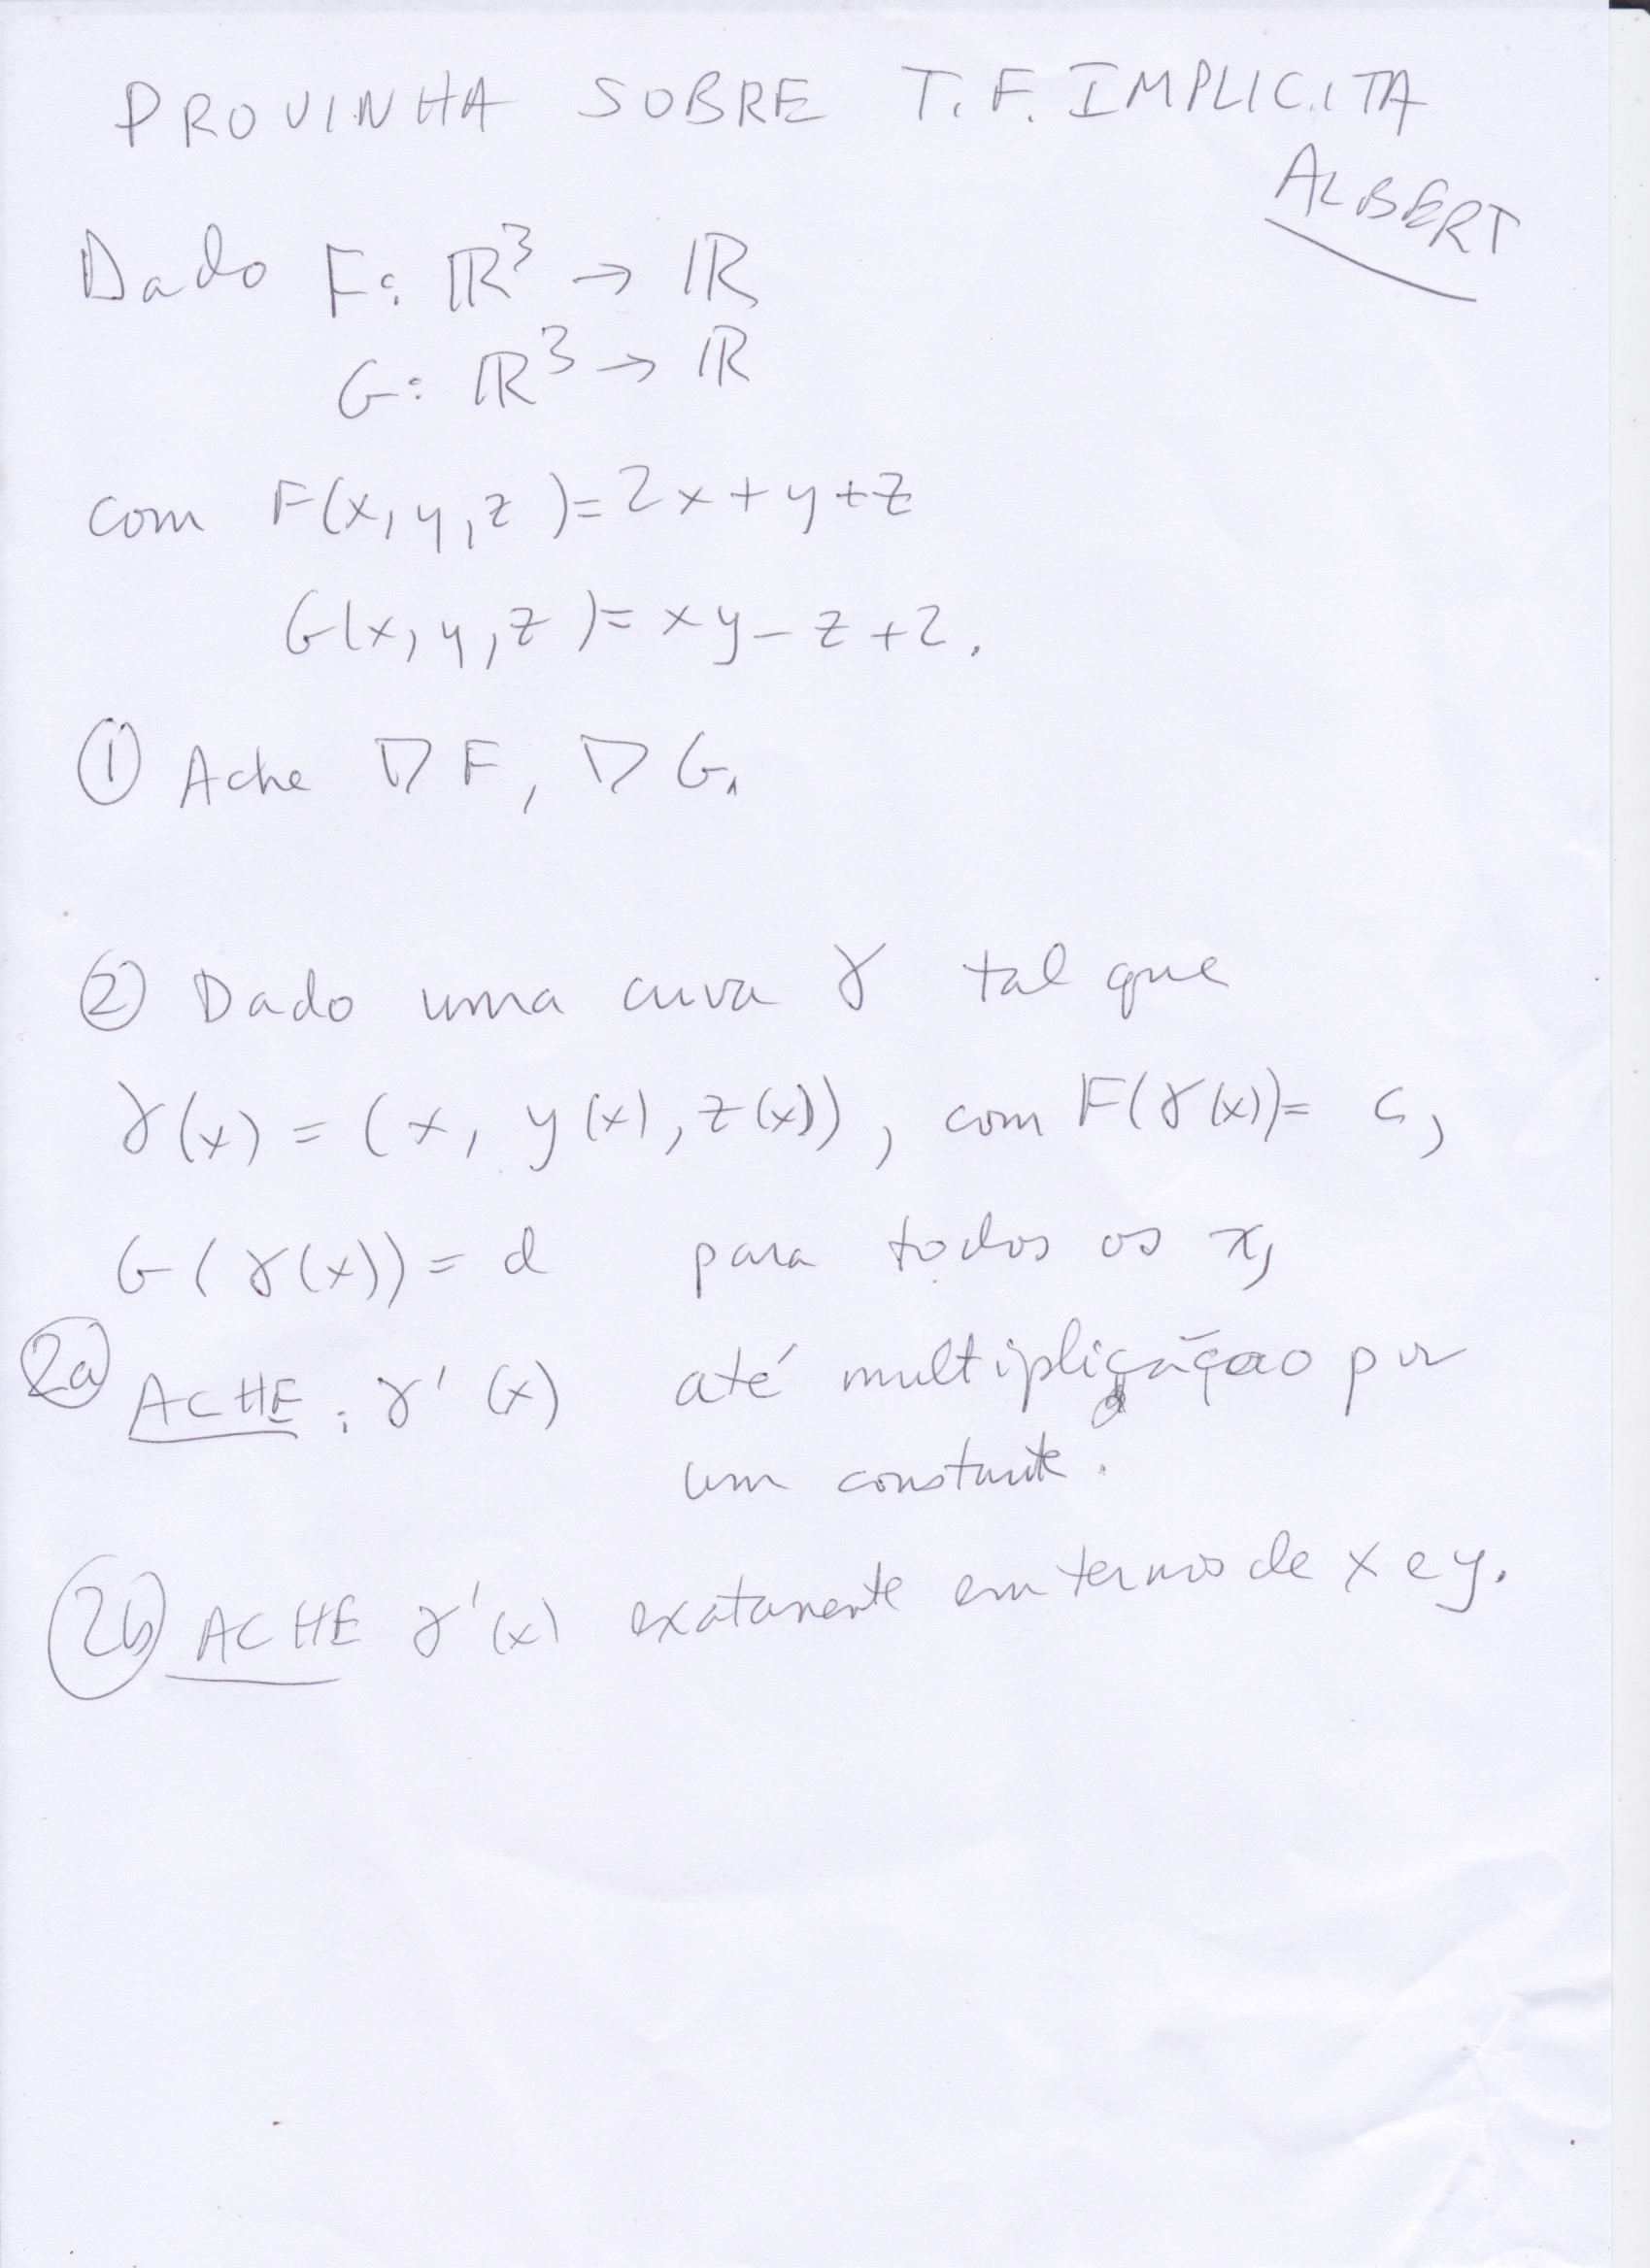 PROVINHA SOBRE T.F. IMPLICITA
ALBERT
Dado F: ℝ³ → ℝ
G: ℝ³ → ℝ
com F(x,y,z)=2x+y+z
G(x,y,z)=xy-z+2.
① Ache ∇F, ∇G.
② Dado uma curva γ tal que
γ(x) = (x, y(x), z(x)), com F(γ(x))= c,
G(γ(x)) = d para todos os x,
2a ACHE: γ'(x) até multiplicação por
um constante.
2b ACHE γ'(x) exatamente em termos de x e y.